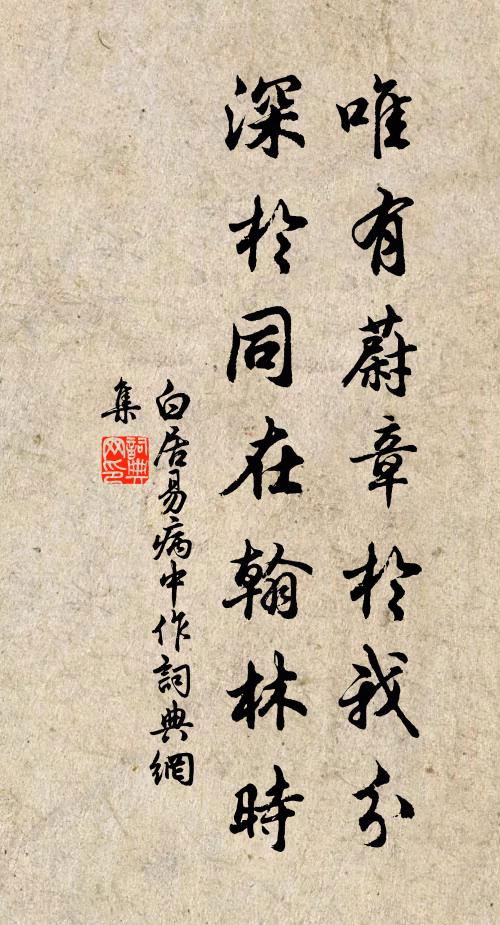 唯有蔚章於我分
深於同在翰林時
白居易病中作詞典網
集
詞典网印